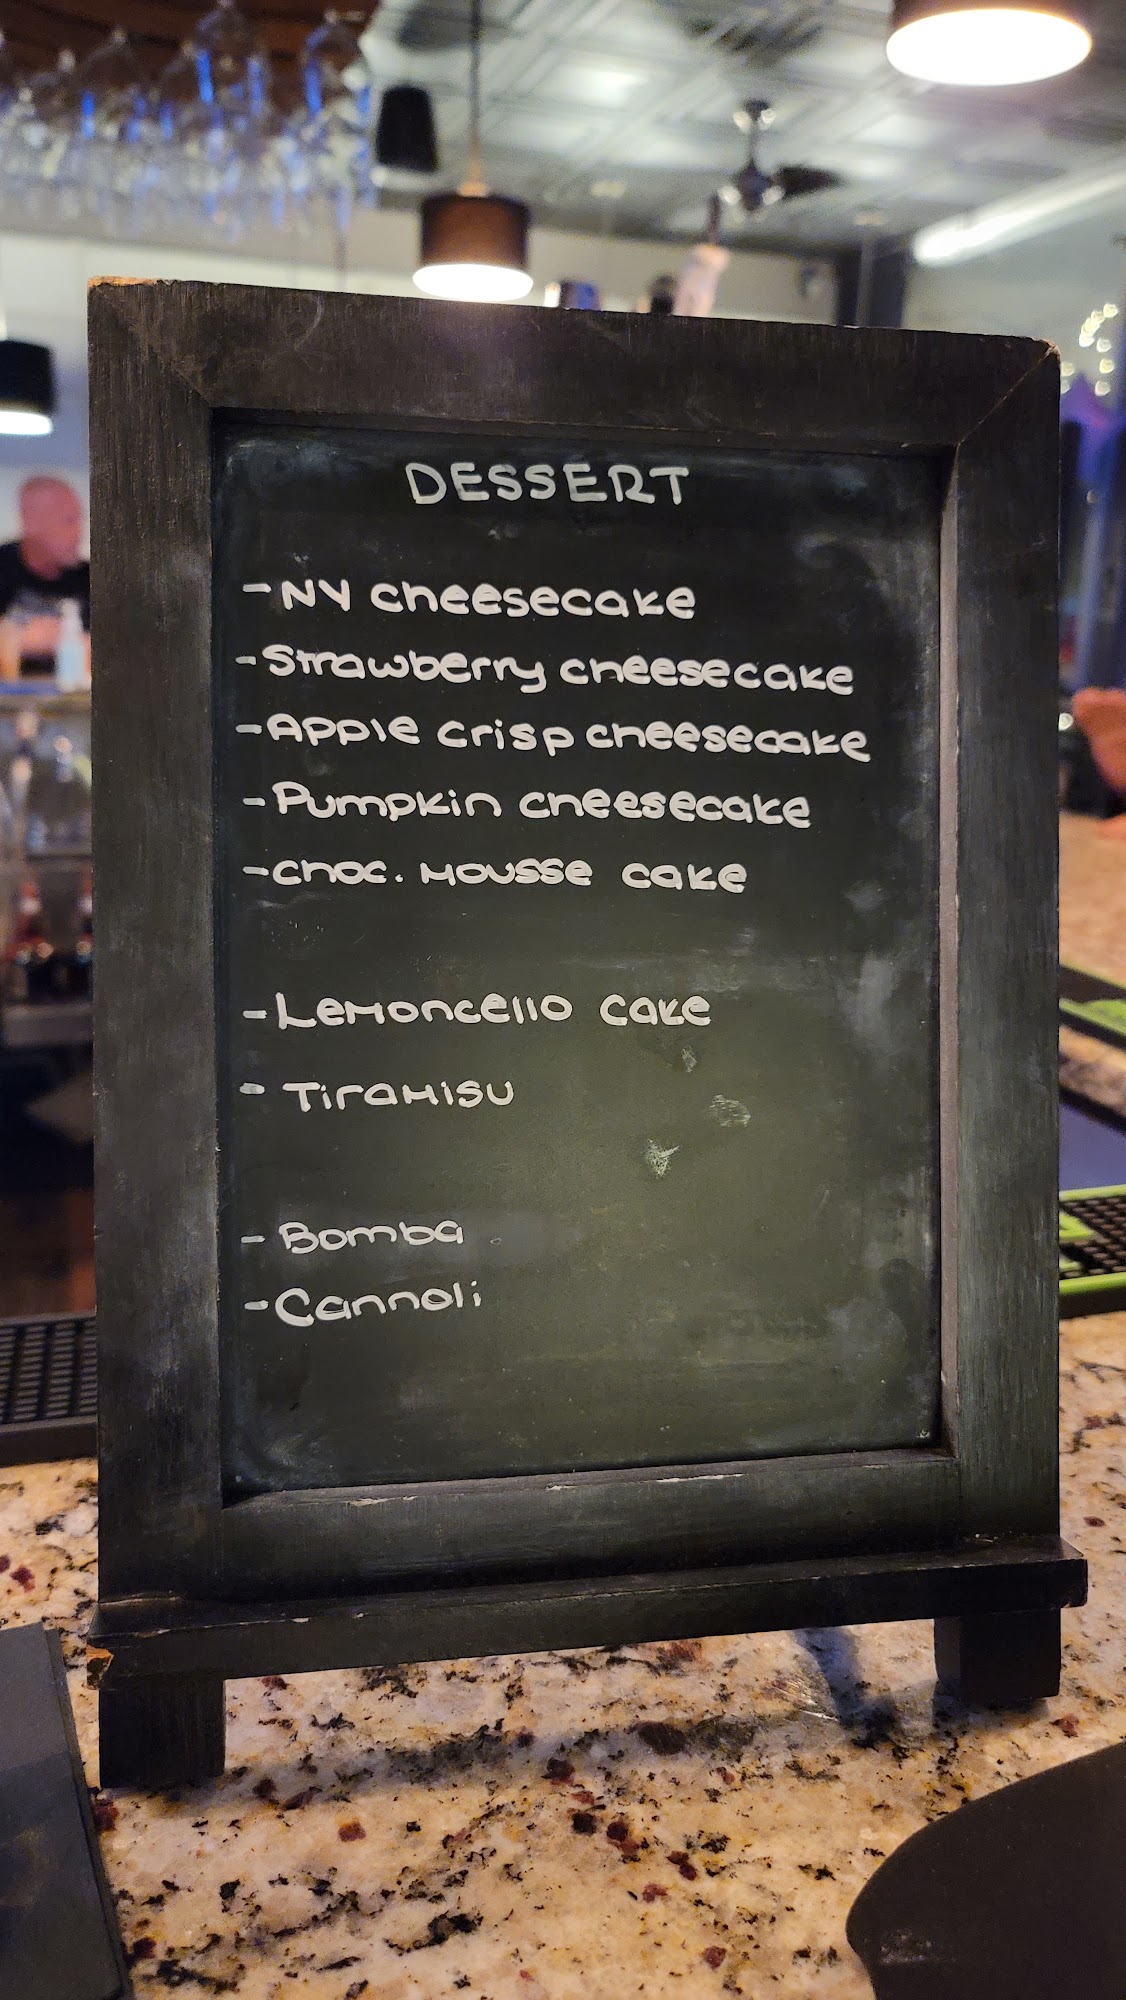 DESSERT
- NY cheesecake
- Strawberry cheesecake
- Apple crisp cheesecake
- Pumpkin cheesecake
- choc. Mousse cake
- Lemoncello cake
- Tiramisu
- Bomba
- Cannoli